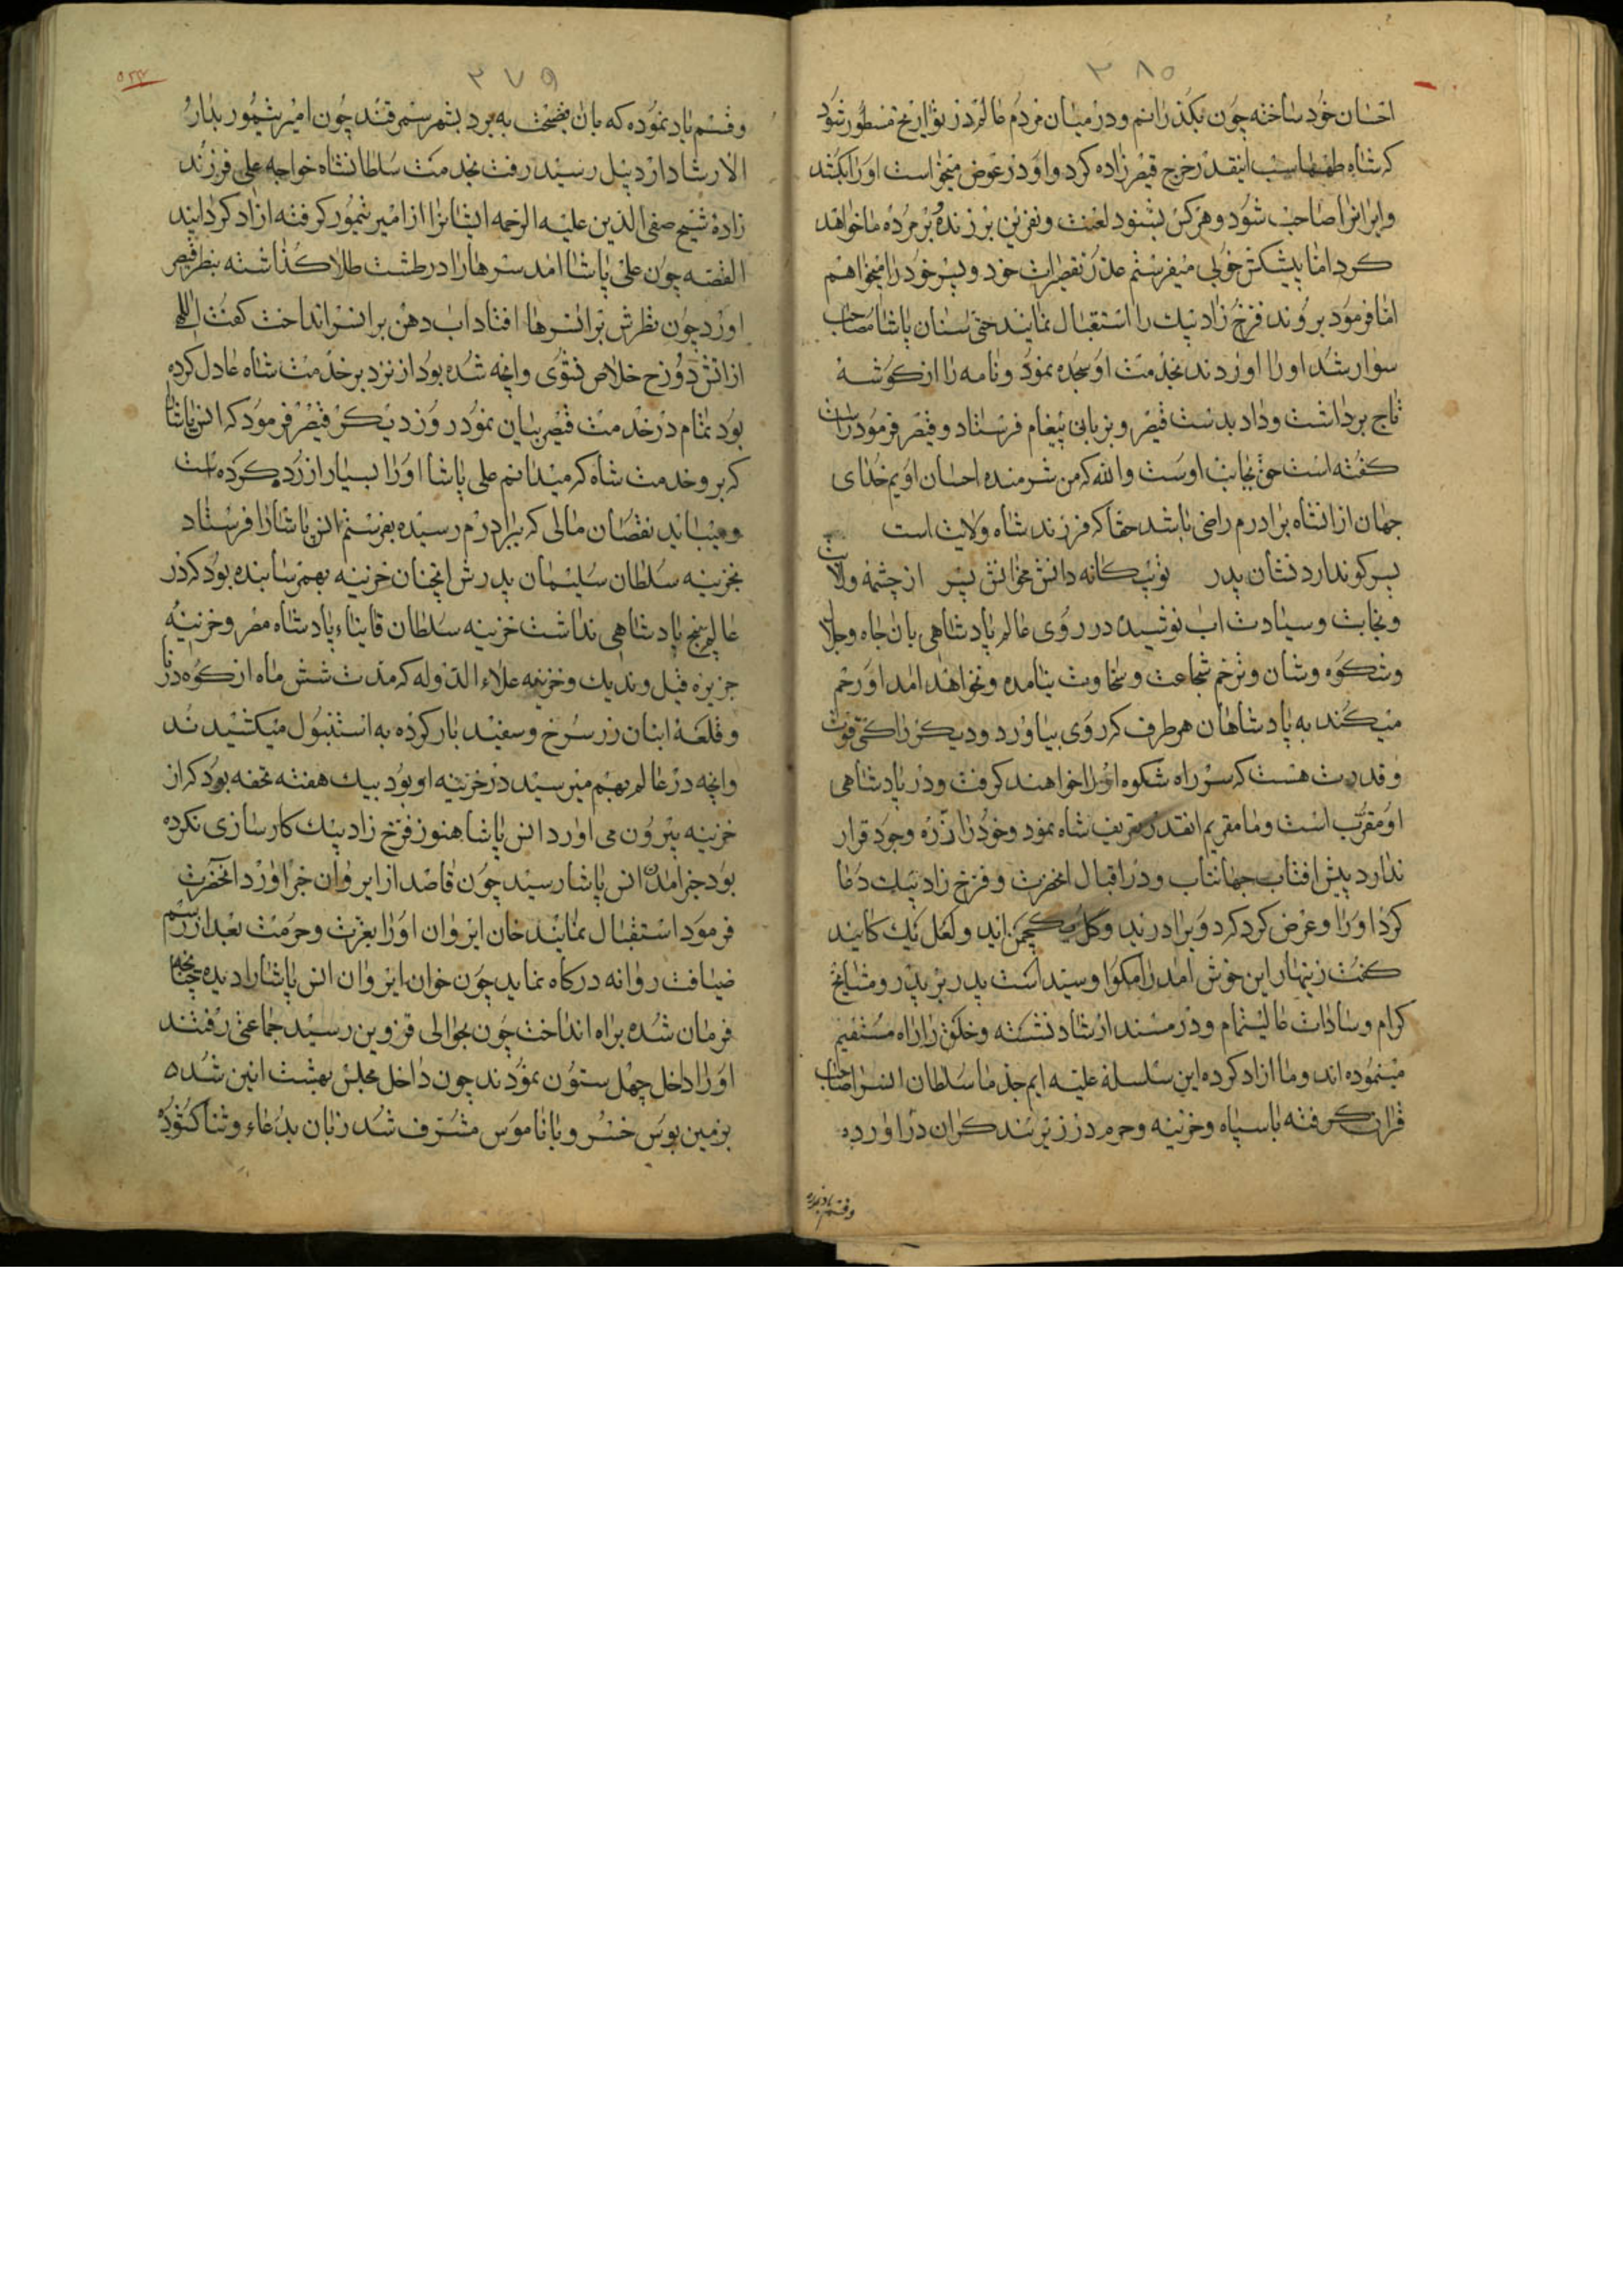 ۳۸۰
احسان خود ساخته چون بگذرانیم و در میان مردم عالم در تواریخ مسطور شود
که شاه طهماسب اینقدر خرج قیصرزاده کرد و او در عوض میخواست او را بکشد
و ایرانرا صاحب شود و هر کس بشنود لعنت و نفرین بر زنده و بر مرده ما خواهد
کرد اما پیشکش خوبی میفرستم عذر تقصیرات خود و پسر خود را میخواهم
اما فرمود بروند فرخ زاد بیک را استقبال نمایند حتی سنان پاشا مصاحب
سوار شد او را اوردند بخدمت او سجده نمود و نامه را از گوشه
تاج برداشت و داد بدست قیصر و بزبانی پیغام فرستاد و قیصر فرمود راست
کفته است حق بجانب اوست والله که من شرمنده احسان اویم خدای
جهان از انشاه برادرم راضی باشد حقا که فرزند شاه ولایت است
پسر کو ندارد نشان پدر تو بیکانه دانش مخوانش پسر از چشمه ولایت
و نجابت و سیادت اب نوشیده در روی عالم پادشاهی بان جاه و جلال
و شکوه و شان و ترحم شجاعت و سخاوت نیامده و نخواهد امد او رحم
میکند به پادشاهان هر طرف که روی بیاورد و دیکر را کی قوت
و قدرت هست که سر راه شکوه او را خواهند کرفت و در پادشاهی
او مقرب است و ما مقریم انقدر تعریف شاه نمود و خود را ذره وجود قرار
ندارد پیش افتاب جهانتاب و در اقبال انحضرت و فرخ زاد بیک دعا
کرد او را و عرض کرد که دو برادرید و کل یک چمن اید و لعل یک کانید
کفت زینهار این خوش امد را مکو او سید است پدر بر پدر و مشایخ
کرام و سادات عالیمقام و در مسند ارشاد نشسته و خلق را براه مستقیم
مینموده اند و ما ازاد کرده این سلسله علیه ایم جد ما سلطان انسرا صاحب
قران کرفته با سپاه و خزینه و حرم در زیر بند کران در اورده
و قسم یاد نموده
۳۷۹
و قسم یاد نموده که بان فضیحت به برد بشهر سمرقند چون امیر تیمور بدار
الارشاد اردبیل رسید رفت بخدمت سلطانشاه خواجه علی فرزند
زاده شیخ صفی الدین علیه الرحمه ایشانرا از امیر تیمور کرفته ازاد کردانید
القصه چون علی پاشا امد سرها را در طشت طلا کذاشته بنظر قیصر
اورد چون نظرش بر انسرها افتاد اب دهن بر انسر انداخت کفت الهی
از اتش دوزخ خلاص نشوی و انچه شده بود از نزد بر خدمت شاه عادل کرده
بود تمام در خدمت قیصر بیان نمود روز دیکر قیصر فرمود که انس پاشا
که برو خدمت شاه که میدانم علی پاشا او را بسیار ازرده کرده است
و میباید نقصان مالی که ببرادرم رسیده بفرستم انس پاشا را فرستاد
بخزینه سلطان سلیمان پدرش انچنان خزینه بهم رسانیده بود که در
عالم هیچ پادشاهی نداشت خزینه سلطان قاینبای پادشاه مصر و خزینه
جزیره قیل و ندیک و خزینه علاء الدوله که مدت شش ماه از کوه درنا
و قلعه ابنان زر سرخ و سفید بار کرده به استنبول میکشیدند
و انچه در عالم بهم میرسید در خزینه او بود بیک هفته تحفه بود که از
خزینه بیرون می اورد انس پاشا هنوز فرخ زاد بیک کارسازی نکرده
بود خبر امدن انس پاشا رسید چون قاصد از ایروان خبر اورد انحضرت
فرمود استقبال نمایند خان ایروان او را بعزت و حرمت بعد از رسم
ضیافت روانه درکاه نماید چون خوان ایروان انس پاشا را دیده چنانچه
فرمان شده براه انداخت چون بحوالی قزوین رسید جماعتی رفتند
او را داخل چهل ستون نمودند چون داخل مجلس بهشت ائین شد
بزمین بوس خسرو با ناموس مشرف شد زبان بدعاء و ثنا کشود